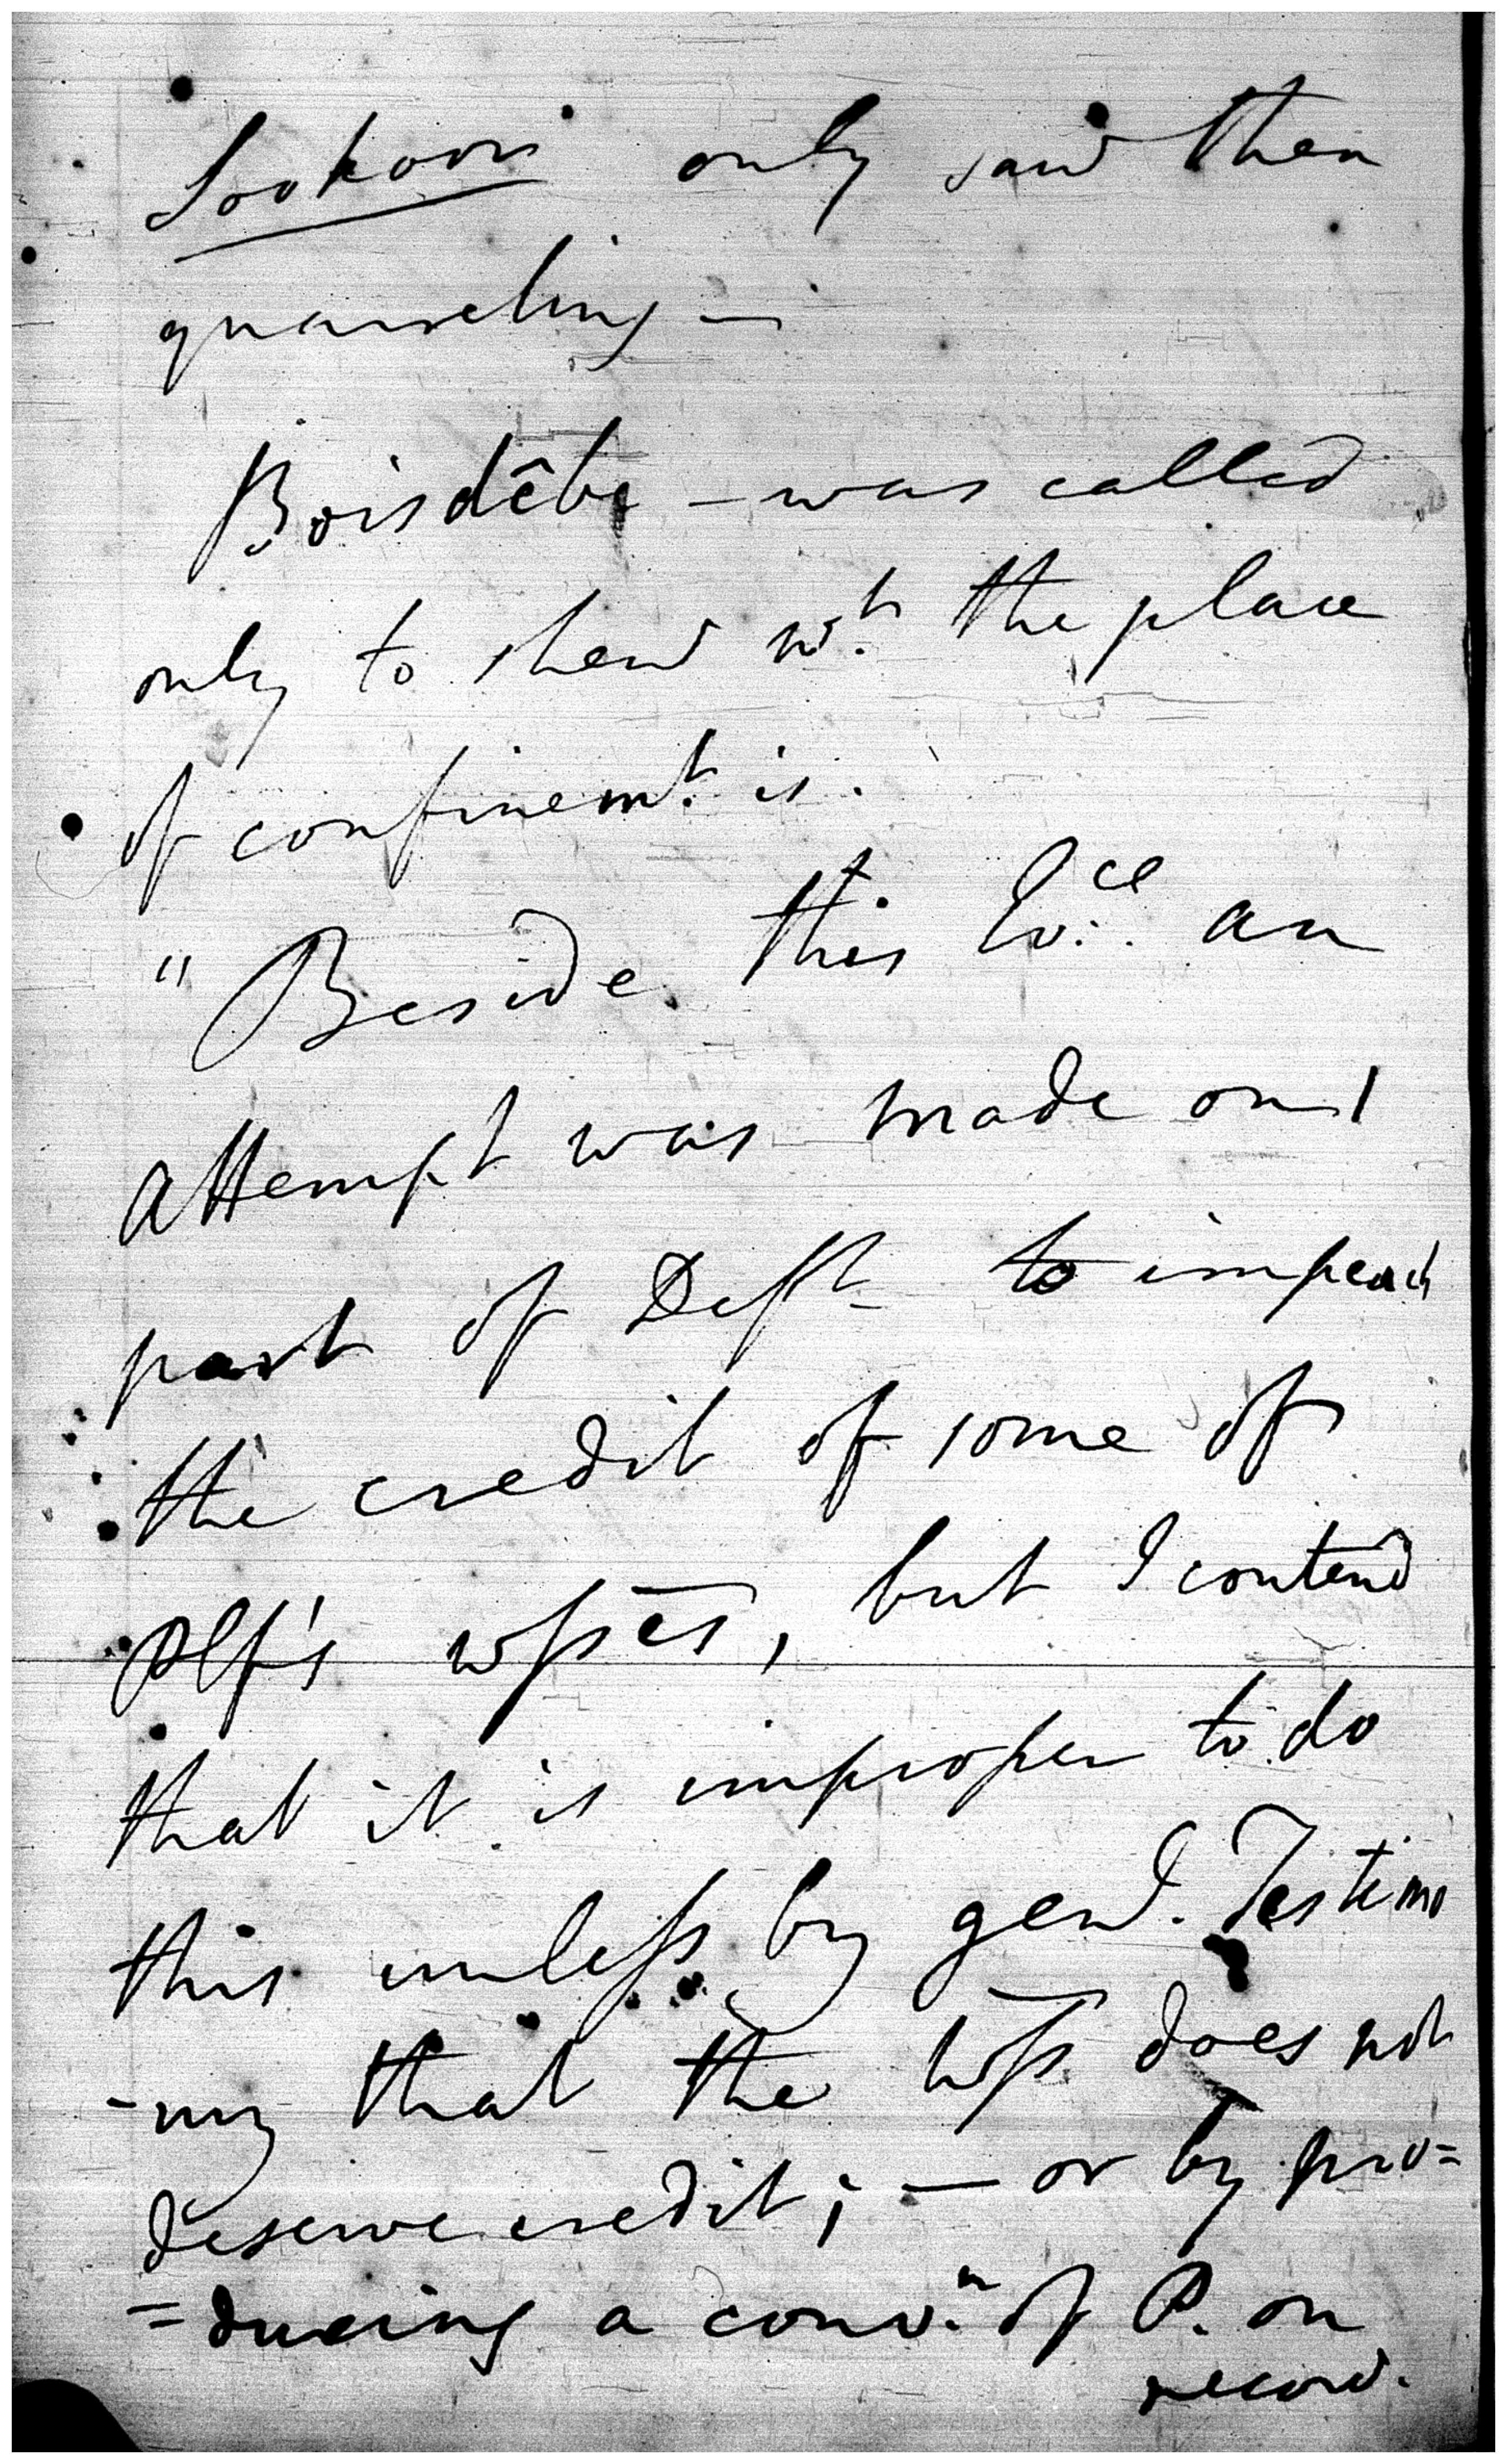 only saw them
quarreling —
Boisdêbe — was called
only to shew wt. the place
of confinemt. is.
" Beside this Evce. an
attempt was made on
part of Deft to impeach
the credit of some of
Plf's wsses, but I contend
that it is improper to do
this unless by genl. Testimo
-ny that the wss does not
deserve credit; — or by pro=
=ducing a convn. of P. on
record.